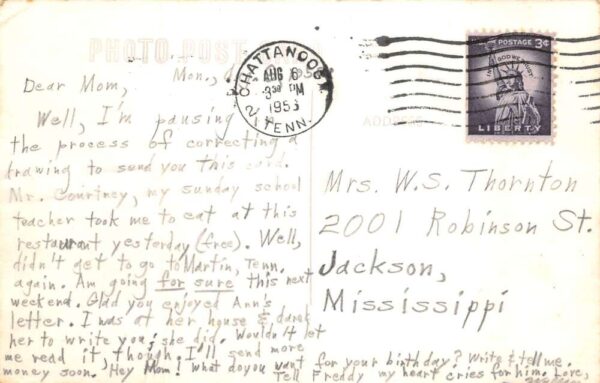 PHOTO POST
Mon.,
Dear Mom,
Well, I'm pausing in
the process of correcting a
drawing to send you this card.
Mr. Courtney, my sunday school
teacher took me to eat at this
restaurant yesterday (free). Well,
didn't get to go to Martin, Tenn.
again. Am going for sure this next
weekend. Glad you enjoyed Ann's
letter. I was at her house & dared
her to write you; she did. Wouldn't let
me read it, though. I'll send more
money soon. Hey Mom! what do you want for your birthday? Write & tell me.
Tell Freddy my heart cries for him. Love,
CHATTANOOGA
AUG 6
3 30 PM
2 TENN.
POSTAGE 3¢
IN GOD WE TRUST
LIBERTY
ADDRESS
Mrs. W.S. Thornton
2001 Robinson St.
Jackson,
Mississippi